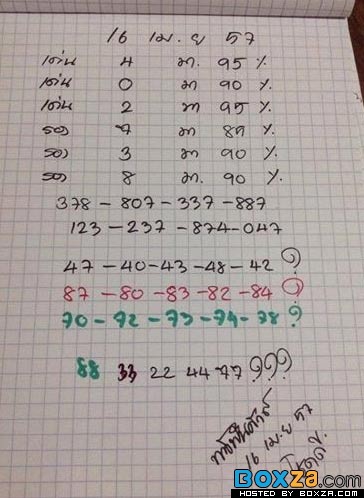 16 เม.ย 57
เด่น 4 มา 95 %
เด่น 0 มา 90 %
เด่น 2 มา 95 %
รอง 7 มา 89 %
รอง 3 มา 90 %
รอง 8 มา. 90 %.
378 - 807 - 337 - 887
123 - 237 - 874 - 047
47 - 40 - 43 - 48 - 42 ?
87 - 80 - 83 - 82 - 84 ?
70 - 72 - 73 - 74 - 78 ?
88 33 22 44 77 ???
16 เม.ย 57
โชคดี.
BOXZA.com
HOSTED BY BOXZA.COM